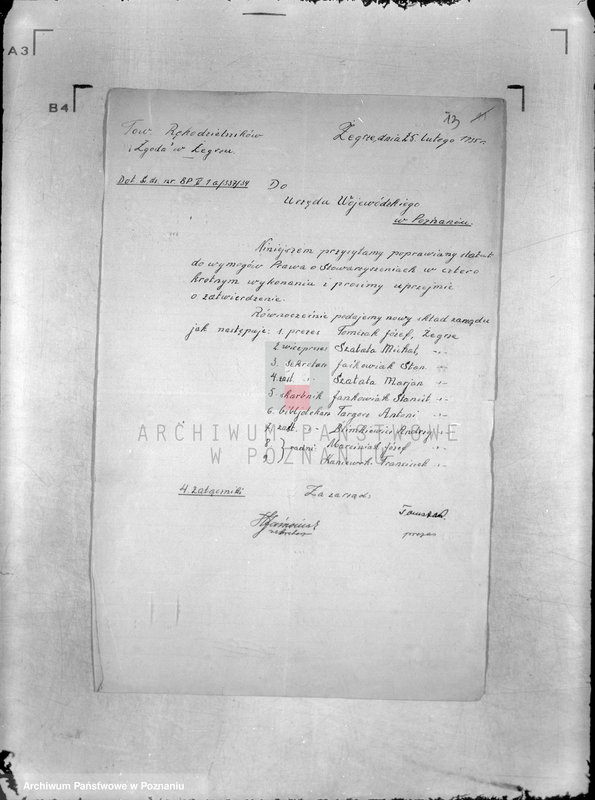 A3
B4
13
Tow. Rękodzielników
Żegrze, dnia 25. lutego 1935 r.
"Zgoda" w Żegrzu.
Dot. L. dz. nr. BP V. 1a/337/34
Do
Urzędu Wojewódzkiego
w Poznaniu.
Niniejszem przysyłamy poprawiany statut
do wymogów Prawa o Stowarzyszeniach w cztero
krotnym wykonaniu i prosimy uprzejmie
o zatwierdzenie.
Równocześnie podajemy nowy skład zarządu
jak następuje: 1. prezes Tomczak Józef, Żegrze
2. wiceprezes Szatata Michał, -"-
3. sekretarz Jaśkowiak Stan. -"-
4. zast. -"- Szatata Marjan -"-
5. skarbnik Jankowiak Stanisł. -"-
6. bibljotekarz Targosz Antoni -"-
7. zast. -"- Klimkiewicz Andrzej -"-
8. } radni Marciniak Józef -"-
9. } Kaniewski Franciszek -"-
4 załączniki
Za zarząd:
Tomczak
sekretarz
prezes
ARCHIWUM PAŃSTWOWE
W POZNANIU
Archiwum Państwowe w Poznaniu